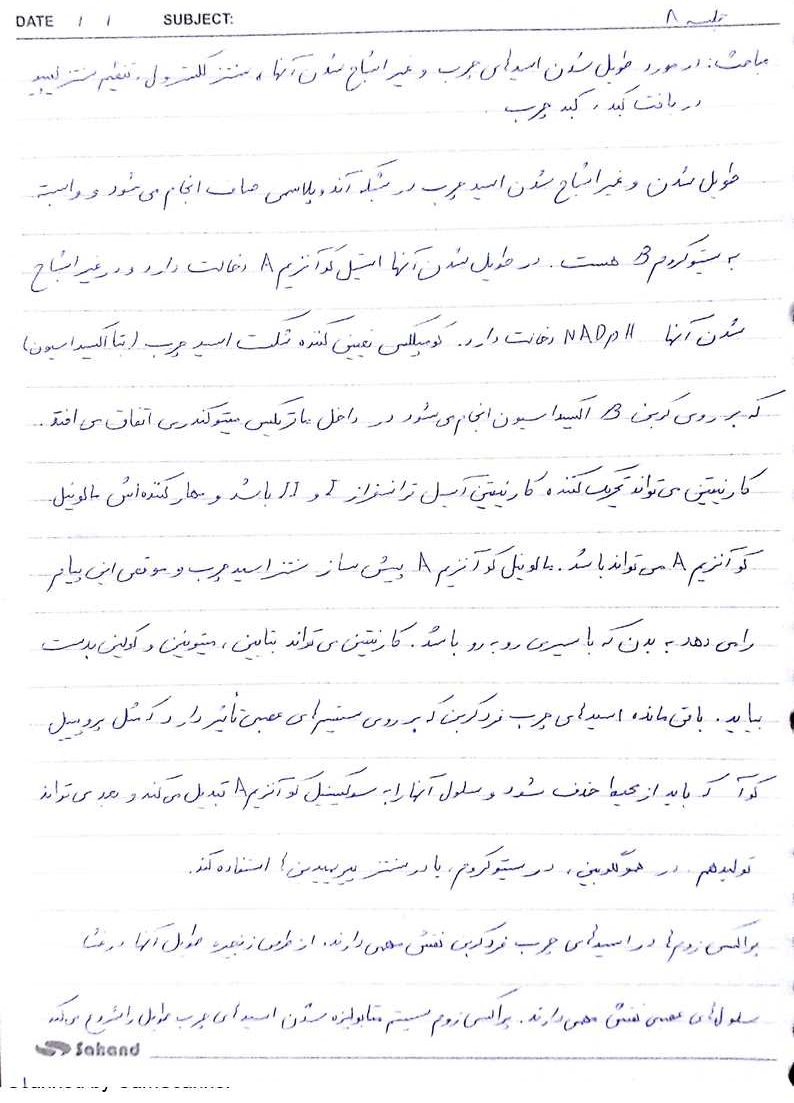 DATE / / SUBJECT:
جلسه ۸
مباحث: در مورد طویل شدن اسیدهای چرب و غیر اشباع شدن آنها، سنتز کلسترول، تنظیم سنتز لیپید
در بافت کبد، کبد چرب
طویل شدن و غیر اشباع شدن اسید چرب در شبکه آندوپلاسمی صاف انجام می شود و وابسته
به سیتوکروم B هست. در طویل شدن آنها استیل کوآنزیم A دخالت دارد و در غیر اشباع
شدن آنها NADPH دخالت دارد. کومپلکس تعیین کننده شکست اسید چرب (بتا اکسیداسیون)
که بر روی کربن B اکسیداسیون انجام می شود در داخل ماتریکس میتوکندری اتفاق می افتد.
کارنیتین می تواند تحریک کننده کارنیتین آسیل ترانسفراز I و II باشد و مهار کننده اش مالونیل
کوآنزیم A می تواند باشد. مالونیل کوآنزیم A پیش ساز سنتز اسید چرب و موقعی این پیام
را می دهد به بدن که با سیری رو به رو باشد. کارنیتین می تواند بتاین، میتونین و کولین بدست
بیاید. باقی مانده اسیدهای چرب فرد کربن که بر روی سیستم های عصبی تأثیر دارد که مثل پروپیل
کوآ که باید از محیط حذف شود و سلول آنها را به سوکسینیل کوآنزیم A تبدیل می کند و بعد می تواند
تولید هم در هموگلوبین، در سیتوکروم، یا در سنتز پیریمیدین ها استفاده کند.
پراکسی زوم ها در اسیدهای چرب فرد کربن نقش مهمی دارند. از طرفی زنجیره طویل آنها در غشا
سلول های عصبی نقش مهمی دارند. پراکسی زوم سیستم متابولیزه شدن اسیدهای چرب طویل را شروع می کند
Sahand
Scanned by CamScanner